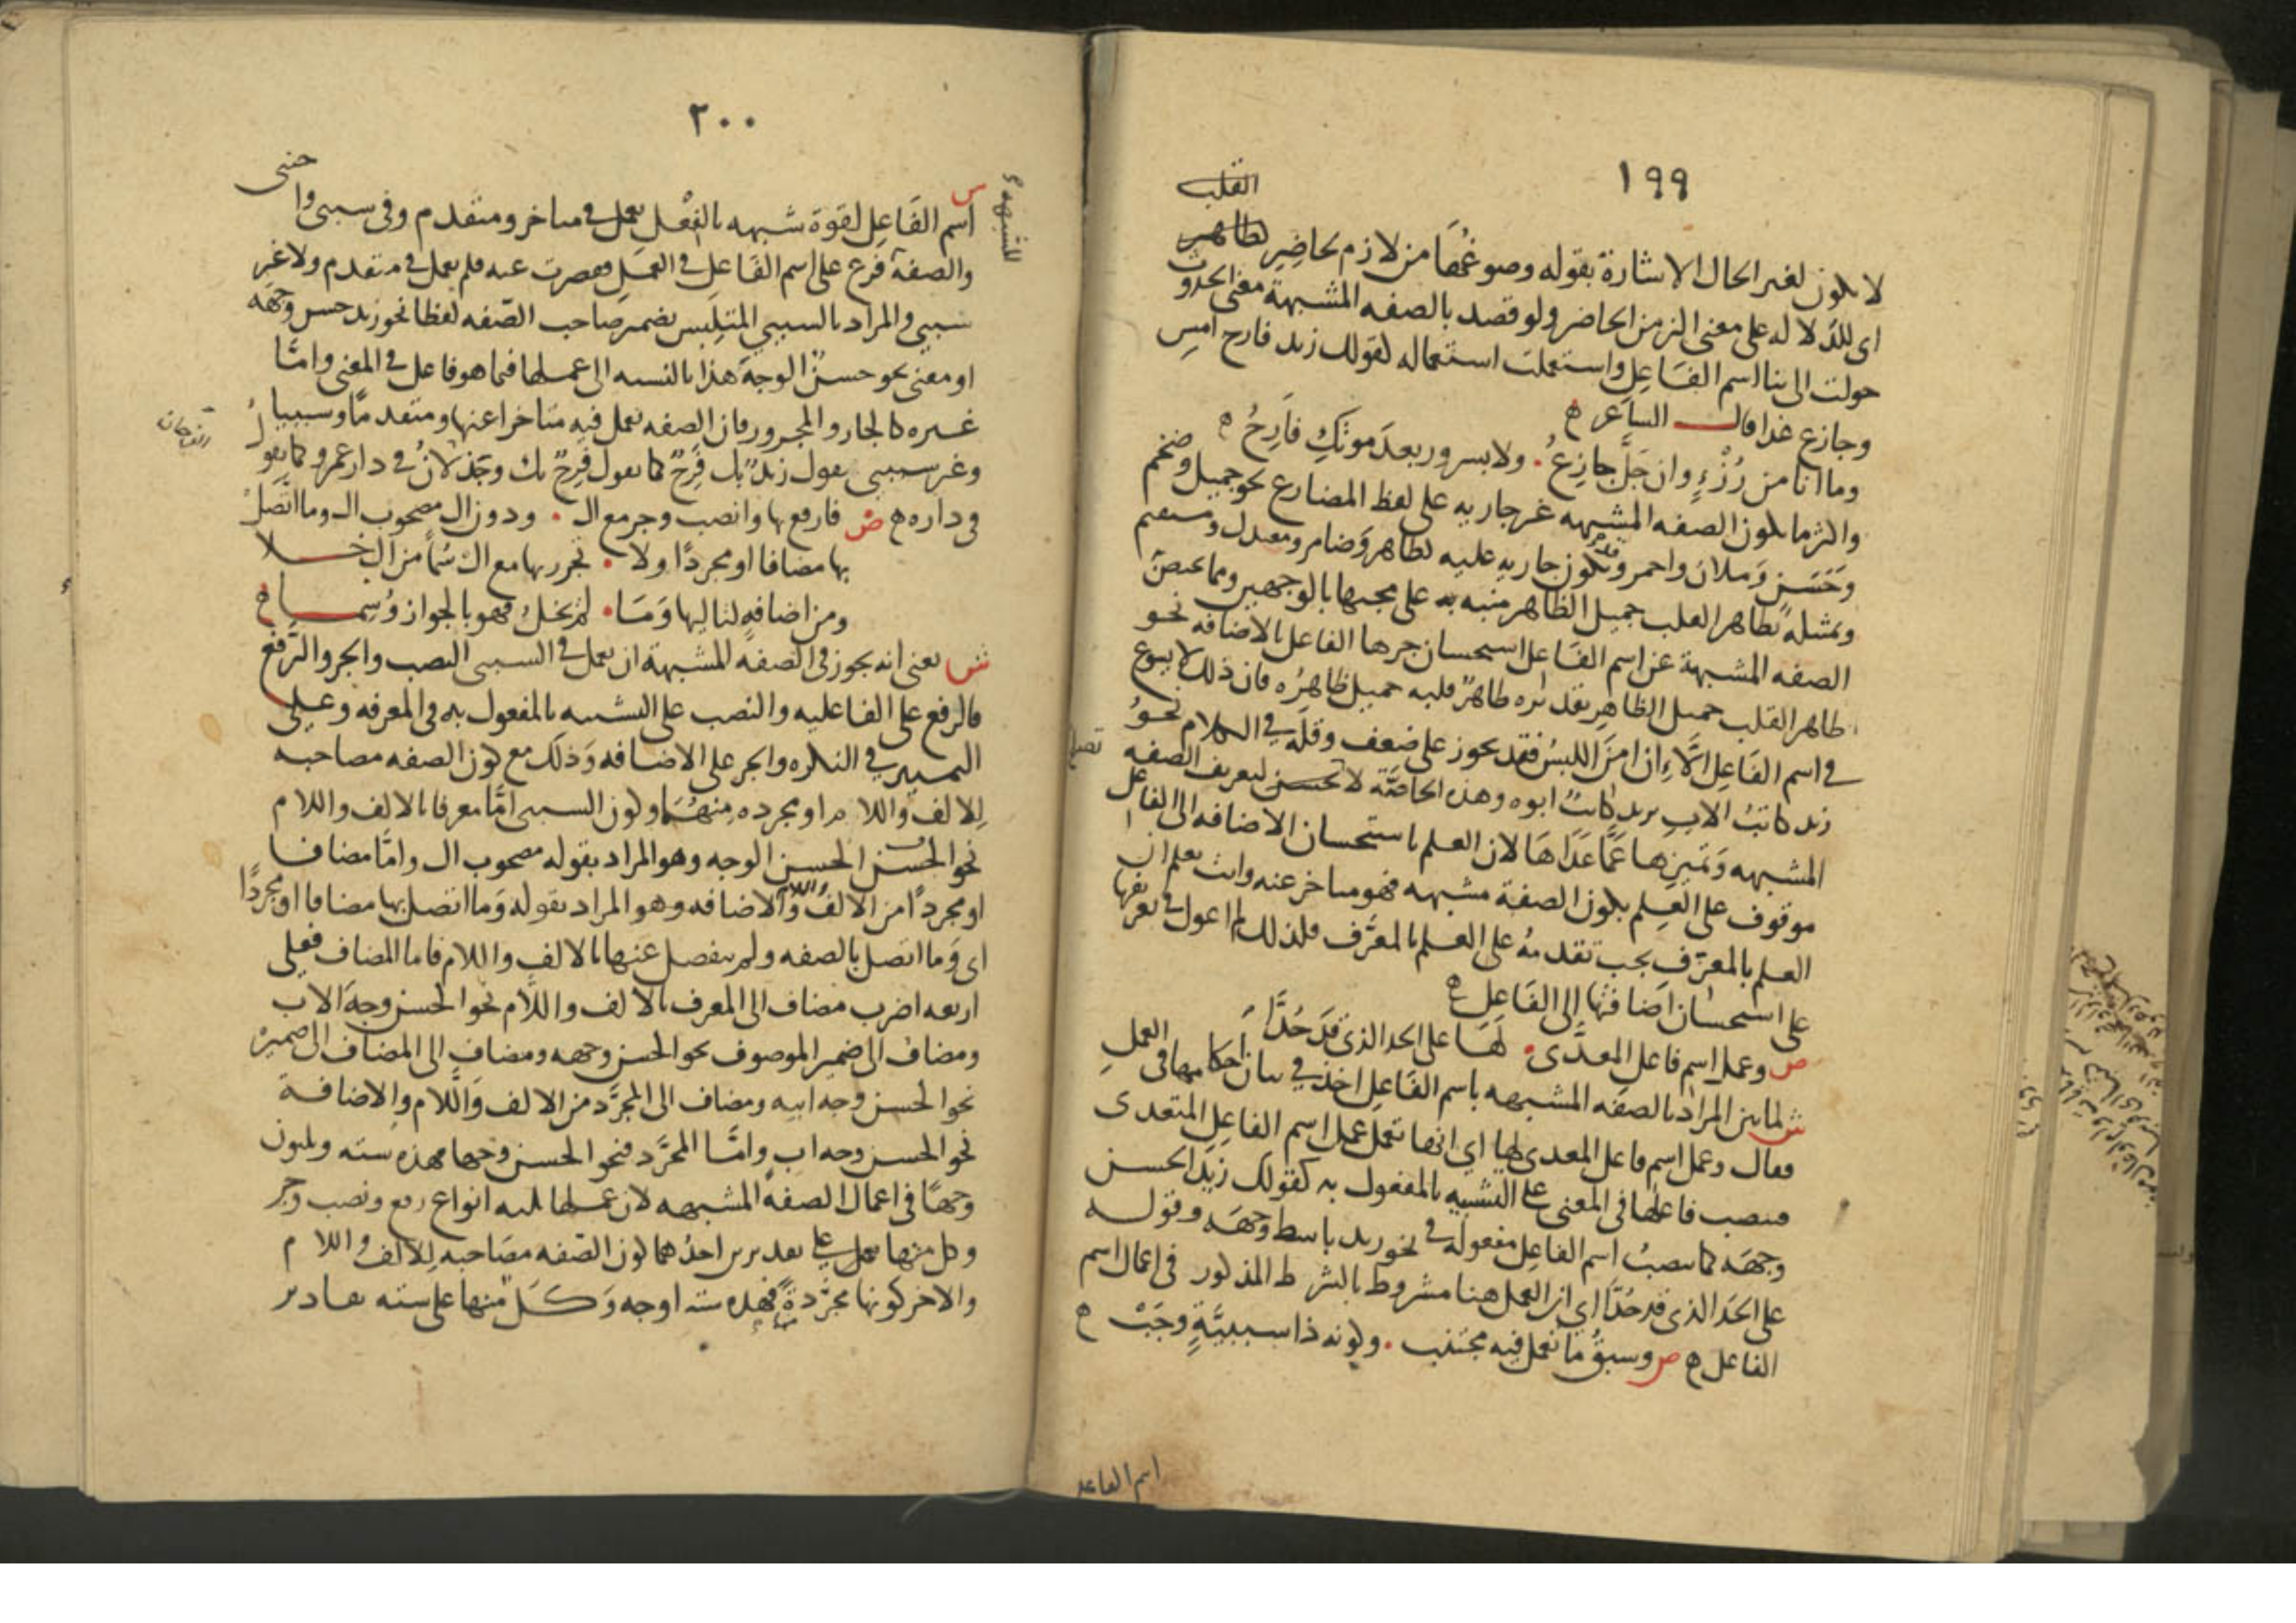 ١٩٩
القلب
لا يكون لغير الحال الاشارة بقوله وصوغها من لازم لحاضر كطاهر
اى للدلالة على معنى الزمن الحاضر ولو قصد بالصفه المشبهة معنى الحدوث
حولت الى بنا اسم الفاعل واستعملت استعماله كقولك زيد فارح امس
وجازع غدا قال الشاعر ه
وما انا من رُزْءٍ وان جَلَّ جازِعٌ . ولا بسرور بعدَ موتكِ فَارِحُ ه
واكثر ما يكون الصفه المشبهه غير جاريه على لفظ المضارع نحو جميل وضخم
وحَسَنٍ وَملان واحمر وقد يكون جاريه عليه كطاهر وَضامر ومعتدل ومستقيم
وتمثيله بطاهر القلب جميل الظاهر منبه به على مجيها بالوجهين ومما يختص
الصفه المشبهة عن اسم الفاعل استحسان جرها الفاعل بالاضافه نحو
طاهر القلب جميل الظاهر تقديره طاهرٌ قلبه جميل ظاهرُه فان ذلك لا يسوغ
في اسم الفَاعِل الّا ان امن اللبسُ فقد يجوز على ضعف وقلّه في الكلام نحوُ
زيد كاتبُ الاب يريد كاتبٌ ابوه وهذه الخاصَّة لا تحسن لتعريف الصفه
المشبهه وَتميزها عَمَّا عَدَاهَا لان العلم باستحسان الاضافه الى الفاعل
موقوف على العِلم بكون الصفة مشبهه فهو متاخر عنه وانت تعلم ان
العلم بالمعرّف يجب تقدمهُ على العلم بالمعرَّف فلذلك لم اعول في تعريفها
على استحسان اضافتها الى الفَاعِل ه
ص وعمل اسم فاعل المعدَّى . لَهَا على الحد الذي قد حُدَّا
ش لما بين المراد بالصفه المشبهه باسم الفَاعِل اخذ في بيان احكامها في العمل
فقال وعمل اسم فاعل المعدى لها اي انها تعمل عمل اسم الفاعل المتعدى
فتنصب فاعلها في المعنى على التشبيه بالمفعول به كقولك زيد الحسن
وجهَه كما ينصبُ اسم الفاعل مفعوله في نحو زيد باسط وجهَه وقوله
على الحد الذى قد حُدَّا اي ان العمل هنا مشروط بالشرط المذكور في اعمال اسم
الفاعل ه ص وسبقُ مَا تعمل فيه مجتنب . وكونه ذا سببيَّةٍ وجَبْ ه
اسم الفاعل
٢٠٠
س
اسم الفَاعِل لقوة شبهه بالفعْل يعمل في متاخر ومتقدم وفي سببى واجنبى
والصفة فرع على اسم الفَاعل في العمَل فقصرت عنه فلم يعمل في متقدم ولا غير
سببي والمراد بالسببي المتلبس بضمير صاحب الصّفه لفظا نحو زيد حسن وجهَه
او معنى نحو حسنٌ الوجهَ هذا بالنسبه الى عملها فيما هو فاعل في المعنى وامَّا
غيره كالجار والمجرور فان الصفه تعمل فيه متاخرا عنها ومتقدمًا وسببيا
وغير سببى يقول زيدٌ بك فَرِحٌ كما يقول فَرِحٌ بك وجَذلانُ في دار عمرو كما يقول
في داره ه ص فارفع بها وانصب وجر مع ال . ودون ال مصحوب ال وما اتَّصَلْ
بها مضافا او مجردًا ولا . تجرر بها مع ال سُمًا من ال خلا
ومن اضافةٍ لتاليها وَمَا . لم يخل فهو بالجواز وُسِما ه
ش يعنى انه يجوز في الصفه المشبهة ان تعمل في السببى النصب والجر والرّفع
فالرفع على الفاعليه والنصب على التشبيه بالمفعول به في المعرفه وعلى
التمييز في النكره والجر على الاضافه وَذلك مع كون الصفه مصاحبه
لِلالف واللام او مجرده مِنهُمَا وكون السببى امَّا معرفا بالالف واللام
نحو الحسن الحسن الوجه وهو المراد بقوله مصحوب ال وامَّا مضافا
او مجردًا من الالف واللام والاضافه وهو المراد بقوله وَما اتصل بها مضافا او مجردًا
اى وَما اتصل بالصفه ولم ينفصل عنها بالالف واللام فاما المضاف فعلى
اربعه اضرب مضاف الى المعرف بالالف واللّام نحو الحسن وجهَ الاب
ومضاف الى ضمير الموصوف نحو الحسن وجهه ومضاف الى المضاف الى ضميره
نحو الحسن وجه ابيه ومضاف الى المجرَّد من الالف وَاللّام والاضافة
نحو الحسن وجه ابٍ وامَّا المجرَّد فنحو الحسن وجها فهذه سته وثلثون
وجهًا في اعمال الصفه المشبهه لان عملها ثلثه انواع رفع ونصب وجر
وكل منها يعمل على تقديرين احدُهما كون الصّفه مصَاحبه لِلالف واللام
والاخر كونها مجرَّدةً فهذه سته اوجه وَكلّ منها على سته تقادير